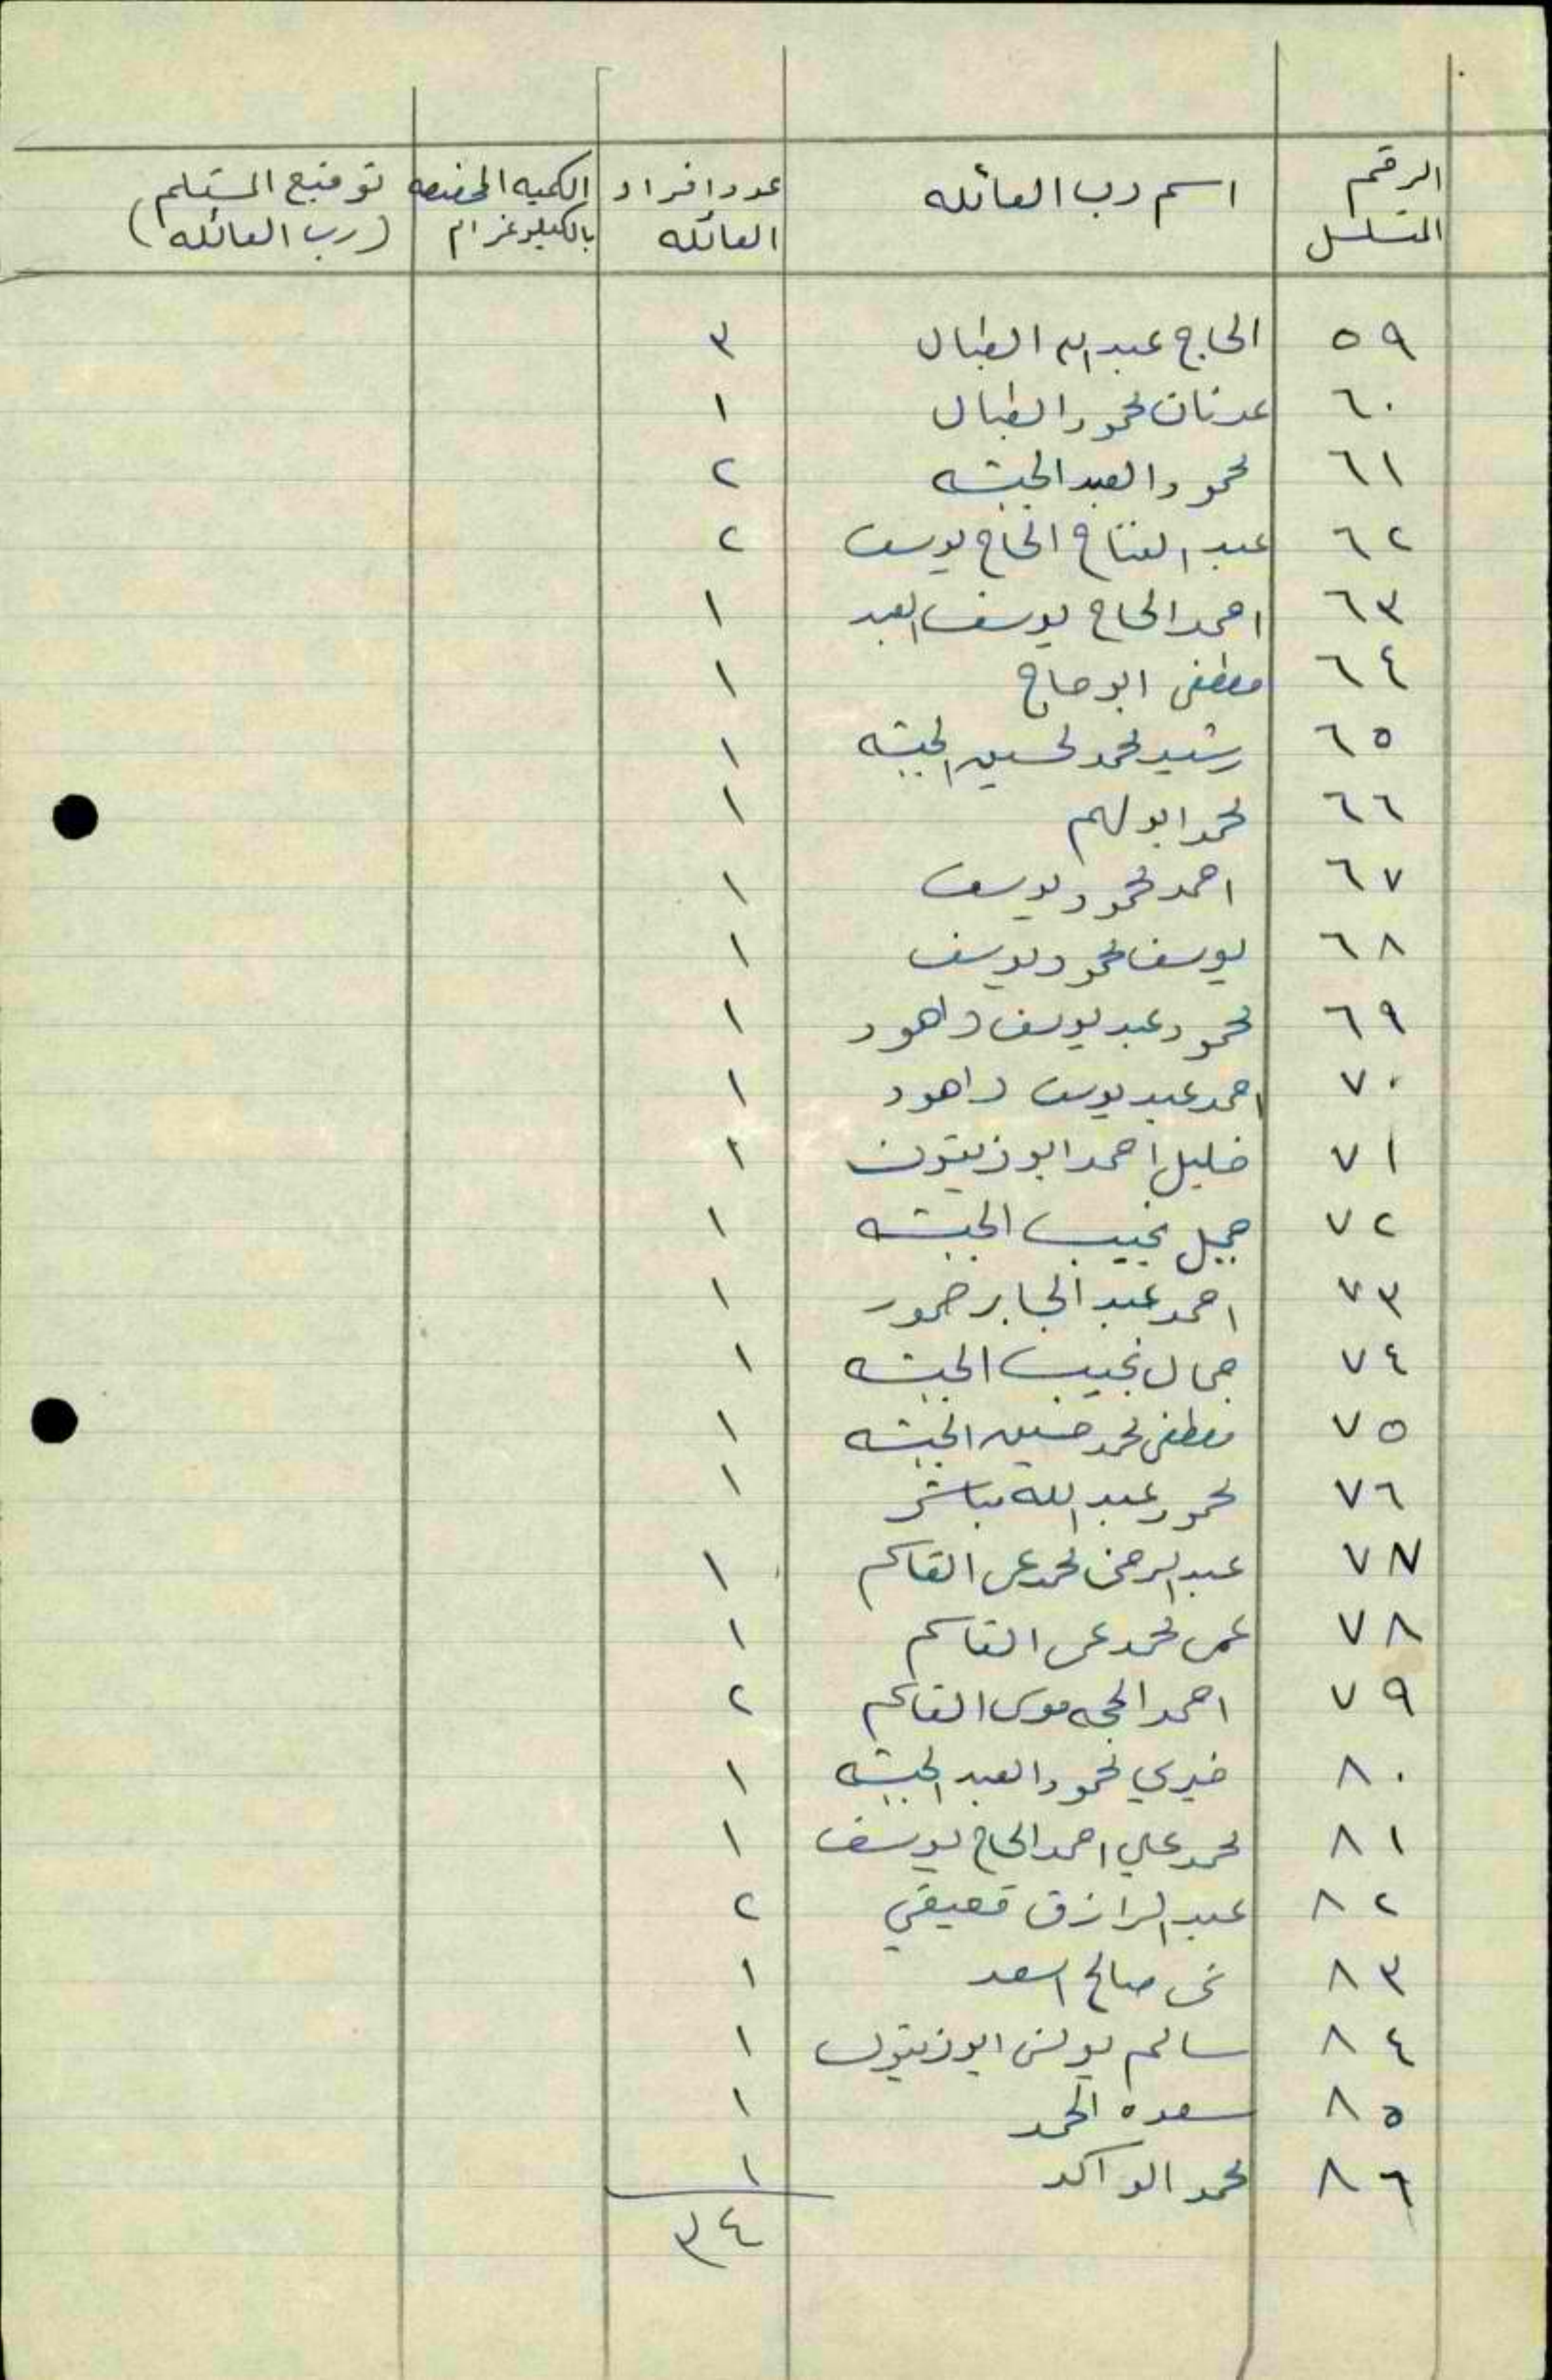 الرقم المتسلسل | اسم رب العائله | عدد افراد العائله | الكميه المخصصه بالكيلوغرام | توقيع المستلم (رب العائله)
٥٩ | الحاج عبد الله الطبال | ٣
٦٠ | عدنان محمود الطبال | ١
٦١ | محمود العبد الحبشه | ٢
٦٢ | عبد الفتاح الحاج يوسف | ٢
٦٣ | احمد الحاج يوسف العبد | ١
٦٤ | مصطفى ابو حاج | ١
٦٥ | رشيد محمد حسين الحبشه | ١
٦٦ | محمد ابو لهم | ١
٦٧ | احمد محمود يوسف | ١
٦٨ | يوسف محمود يوسف | ١
٦٩ | محمود عبد يوسف داهود | ١
٧٠ | احمد عبد يوسف داهود | ١
٧١ | خليل احمد ابو زيتون | ١
٧٢ | جميل نجيب الحبشه | ١
٧٣ | احمد عبد الجابر حمور | ١
٧٤ | جمال نجيب الحبشه | ١
٧٥ | مصطفى محمد حسين الحبشه | ١
٧٦ | محمود عبد الله مباشر | ١
٧٧ | عبد الرحمن محمد عمر القاسم | ١
٧٨ | عمر محمد عمر القاسم | ١
٧٩ | احمد الحجه موسى القاسم | ٢
٨٠ | خيري محمود العبد الحبشه | ١
٨١ | محمد علي احمد الحاج يوسف | ١
٨٢ | عبد الرازق قعيقي | ٢
٨٣ | صالح اسعد | ١
٨٤ | سالم يونس ابو زيتون | ١
٨٥ | سعده الحمد | ١
٨٦ | محمد الواكد | ١
٣٤